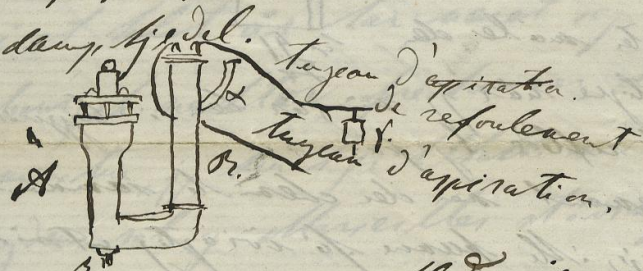 damptijedel.
tuyeau d'aspiration.
de refoulement
α
γ.
tuyeau d'aspiration.
A
B.